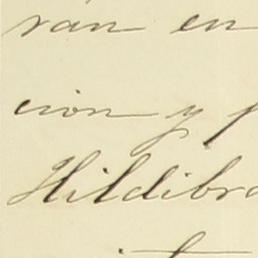 ran en
cion y p
Hildibra